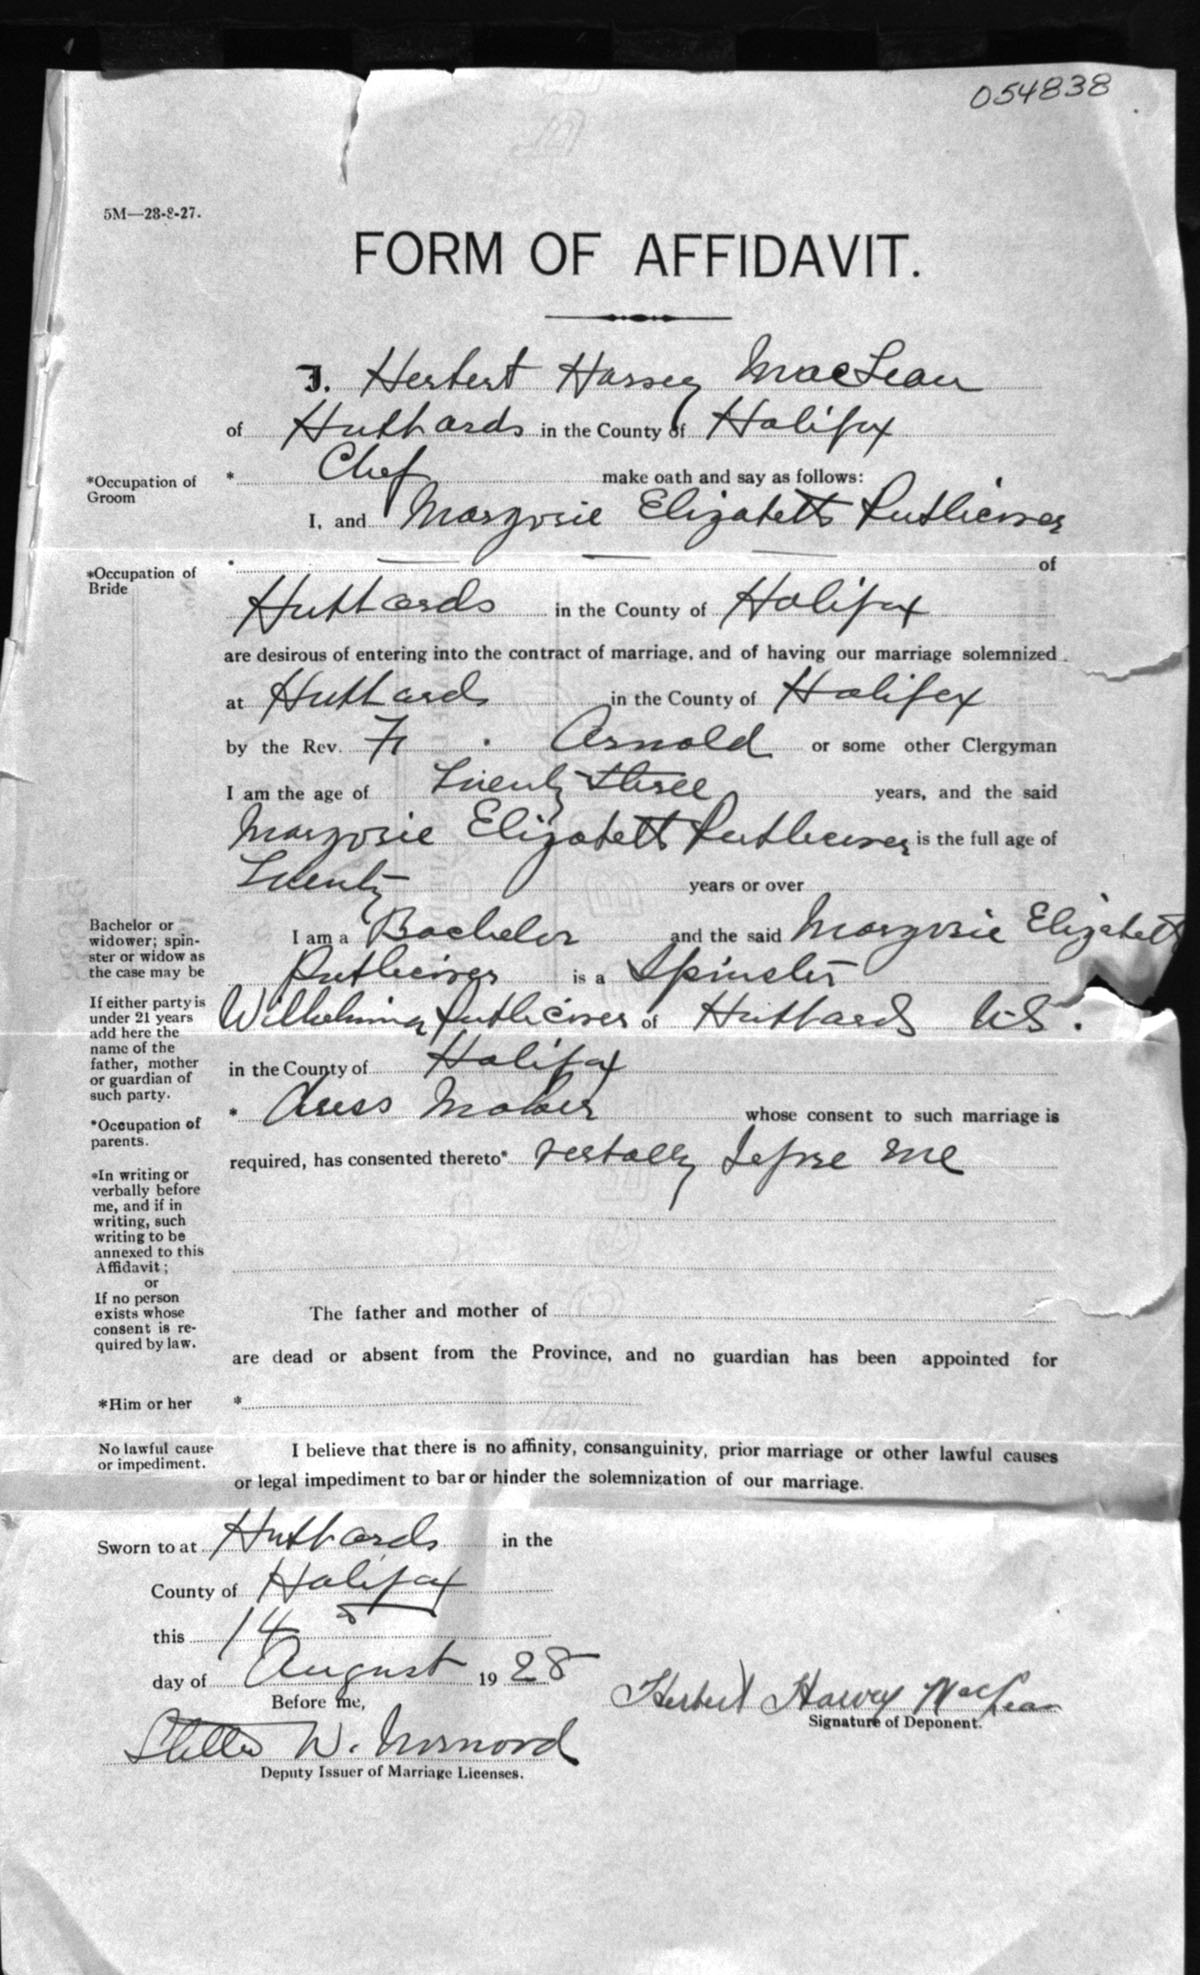 054838
5M—23-8-27.
FORM OF AFFIDAVIT.
I. Herbert Harvey MacLean
of Hubbards in the County of Halifax
*Occupation of Groom
* Chef make oath and say as follows:
I, and Marjorie Elizabeth Publicover
*Occupation of Bride
* of
Hubbards in the County of Halifax
are desirous of entering into the contract of marriage, and of having our marriage solemnized
at Hubbards in the County of Halifax
by the Rev. Arnold or some other Clergyman
I am the age of Twenty three years, and the said
Marjorie Elizabeth Publicover is the full age of
Twenty years or over
Bachelor or widower; spinster or widow as the case may be
I am a Bachelor and the said Marjorie Elizabeth
Publicover is a Spinster
If either party is under 21 years add here the name of the father, mother or guardian of such party.
Wilhelmina Publicover of Hubbards N.S.
in the County of Halifax
*Occupation of parents.
* Dress Maker whose consent to such marriage is
required, has consented thereto* verbally before me
*In writing or verbally before me, and if in writing, such writing to be annexed to this Affidavit;
or
If no person exists whose consent is required by law.
The father and mother of
are dead or absent from the Province, and no guardian has been appointed for
*Him or her
*
No lawful cause or impediment.
I believe that there is no affinity, consanguinity, prior marriage or other lawful causes
or legal impediment to bar or hinder the solemnization of our marriage.
Sworn to at Hubbards in the
County of Halifax
this 14
day of August 1928
Before me,
Herbert Harvey MacLean
Signature of Deponent.
W.
Deputy Issuer of Marriage Licenses.